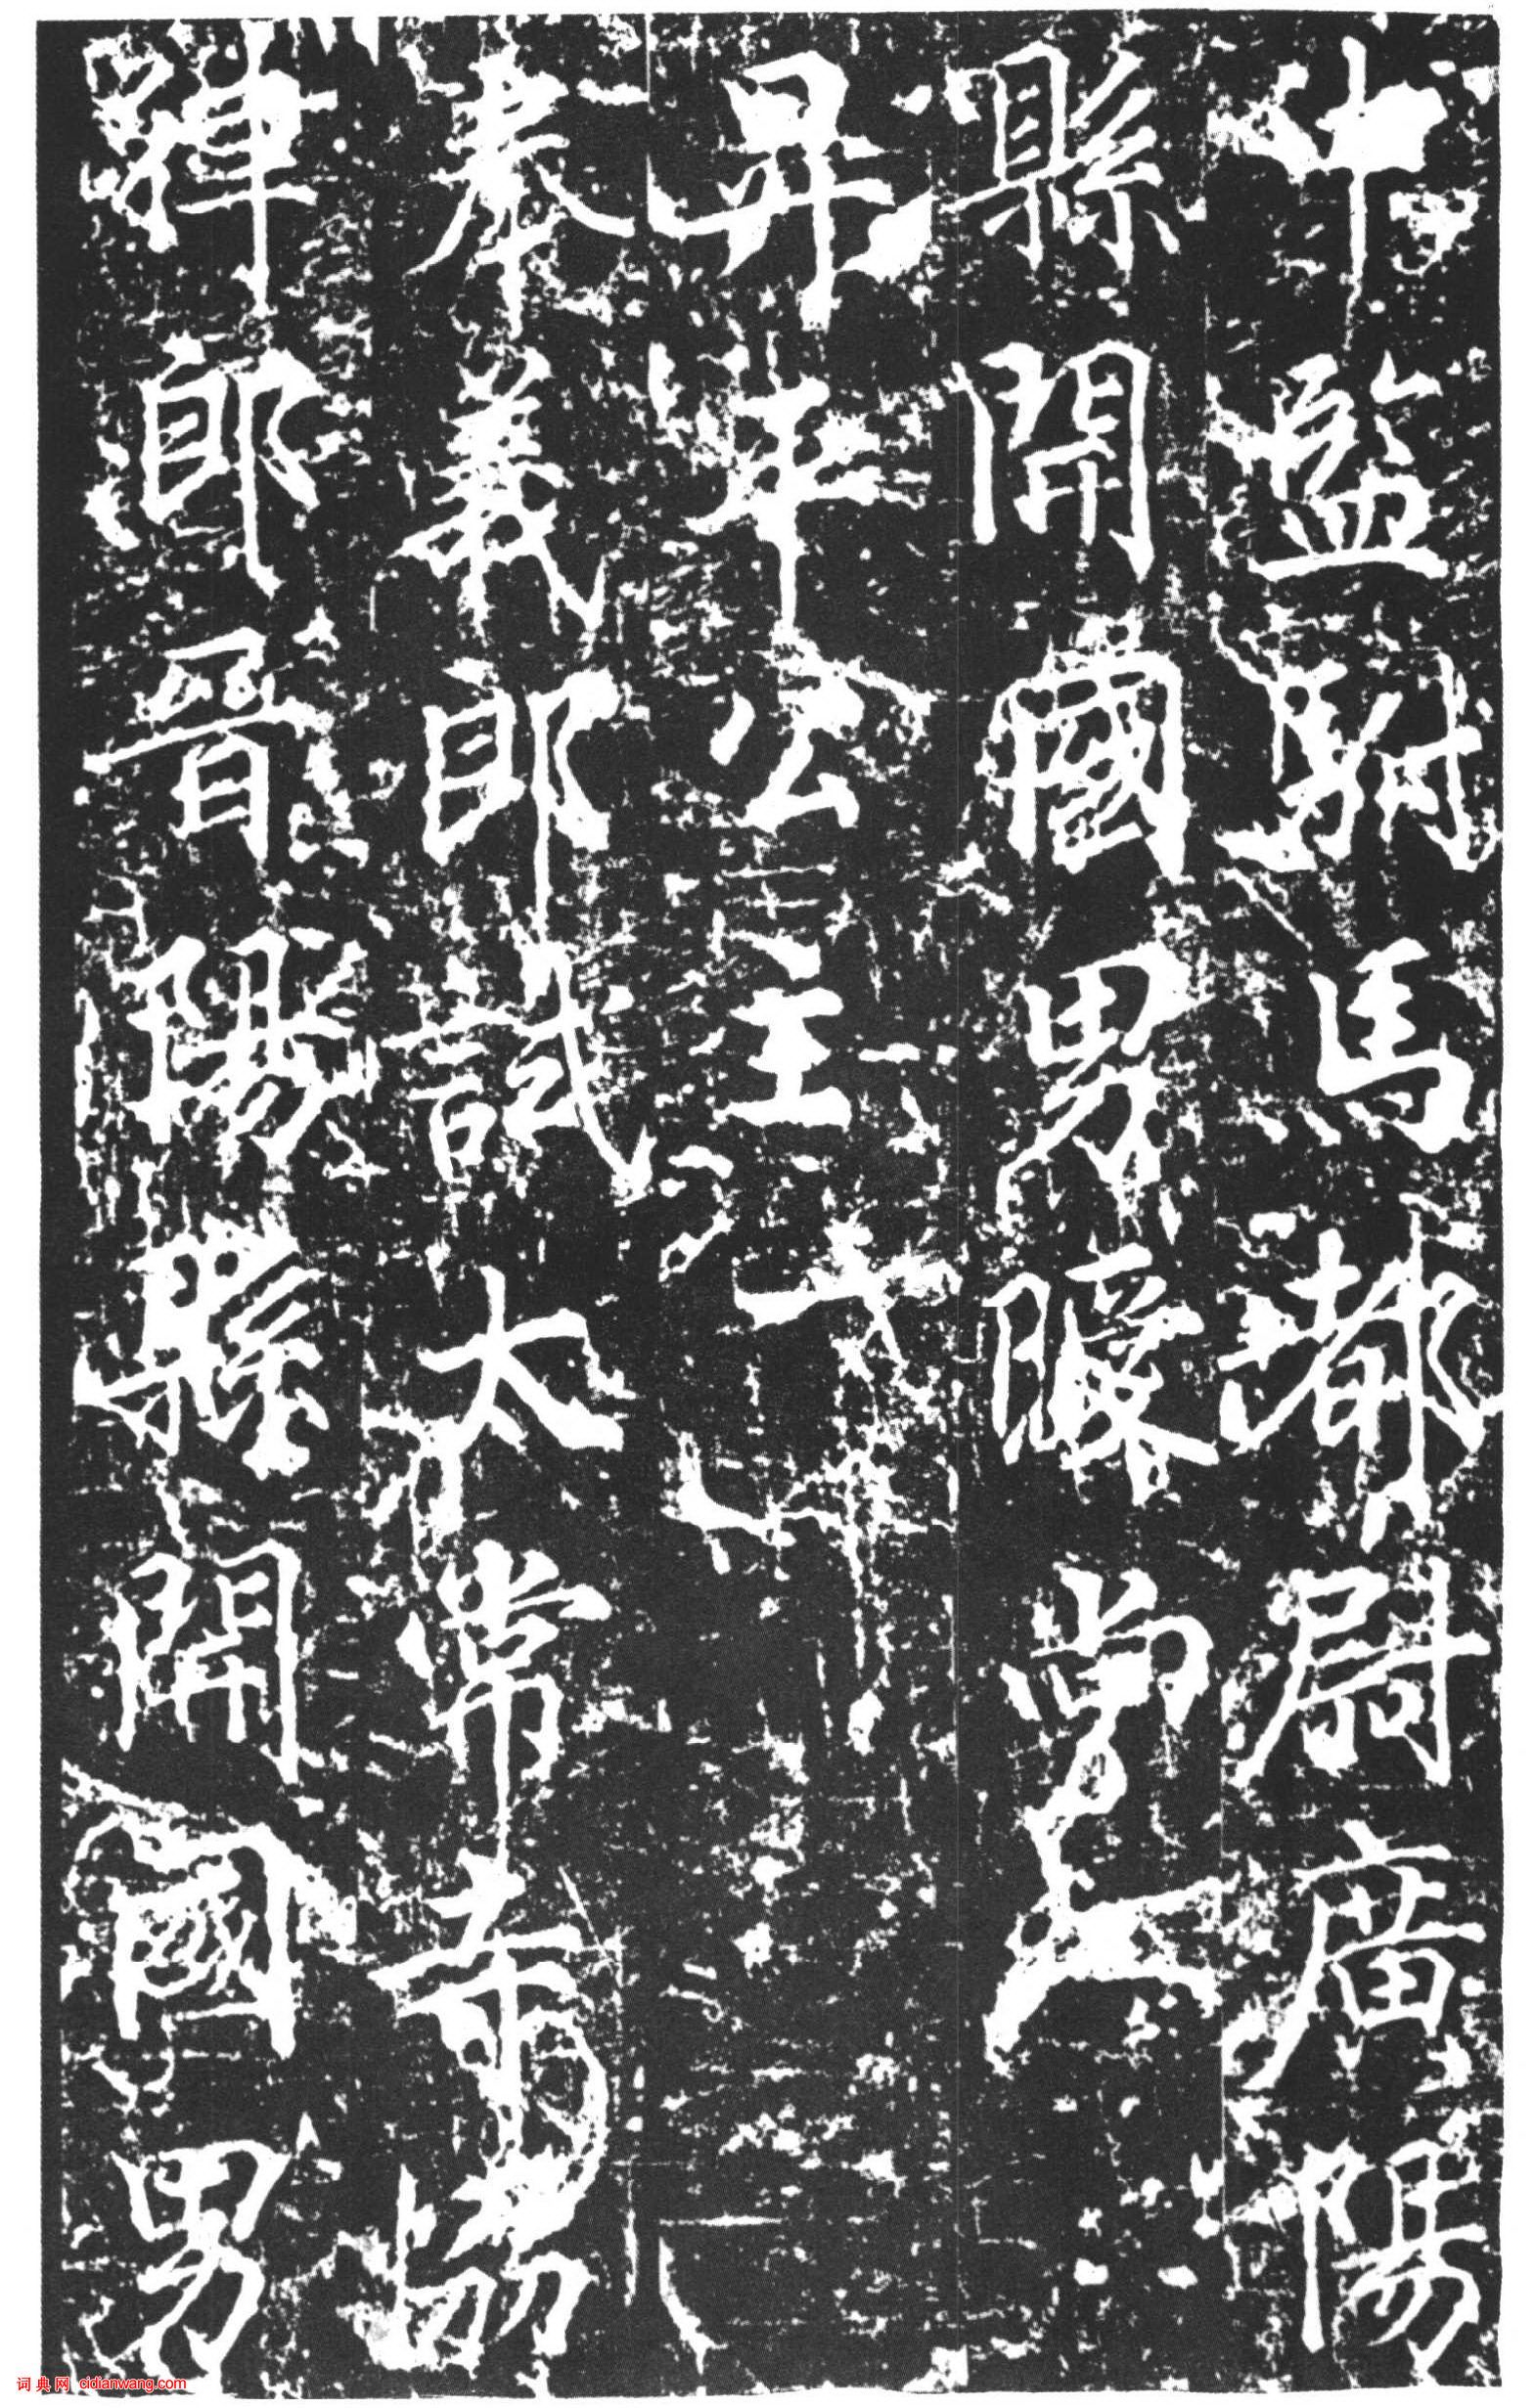 中監駙馬都尉廣陽
縣開國男曖尚
昇平公主
奉義郎試太常寺協
律郎晉陽縣開國男
词典网 cidianwang.com